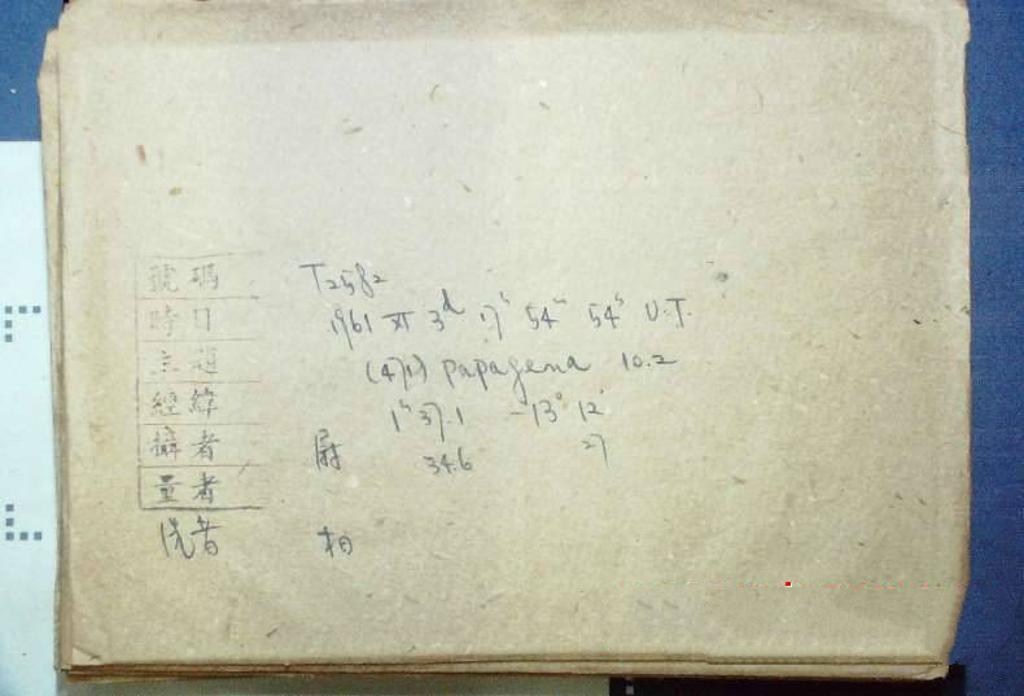 號碼 T2582
時日 1961 XI 3d 17h 54m 54s U.T.
主題 (471) papagena 10.2
經緯 1h 37.1 -13° 12'
攝者 尉 34.6 27
量者
洗者 柏